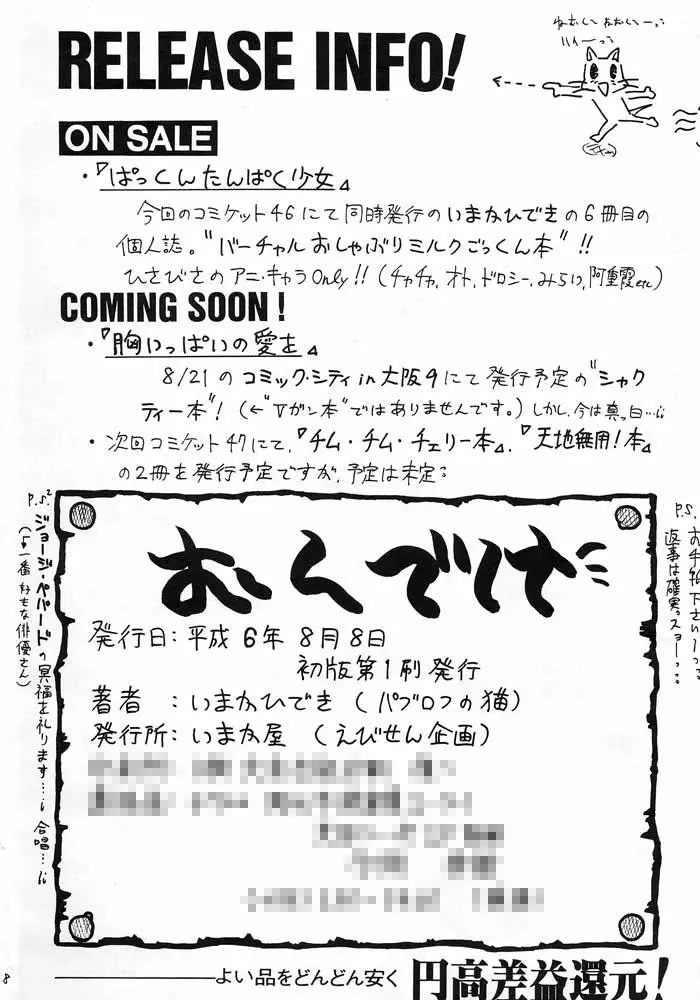 RELEASE INFO!
ON SALE
・『ぱっくんたんぱく少女』
今回のコミケット46にて同時発行のいまかひできの6冊目の
個人誌。"バーチャルおしゃぶりミルクごっくん本"!!
ひさびさのアニ・キャラOnly!! (チャチャ,オト,ドロシー,みらい,阿重霞etc)
COMING SOON!
・『胸いっぱいの愛を』
8/21のコミック・シティin大阪9にて発行予定の"シャク
ティー本"! (←"Vガン本"ではありませんです。) しかし、今は真っ白…
・次回コミケット47にて、『チム・チム・チェリー本』、『天地無用!本』
の2冊を発行予定ですが、予定は未定:
P.S.
お手紙下さい
返事は確実っスョーっ
P.S.²
ジョージ・ペパードの冥福を祈ります… 合唱…
(一番好きな俳優さん)
おくづけ
発行日:平成6年8月8日
初版第1刷発行
著者 :いまかひでき (パブロフの猫)
発行所:いまか屋 (えびせん企画)
8
よい品をどんどん安く
円高差益還元!